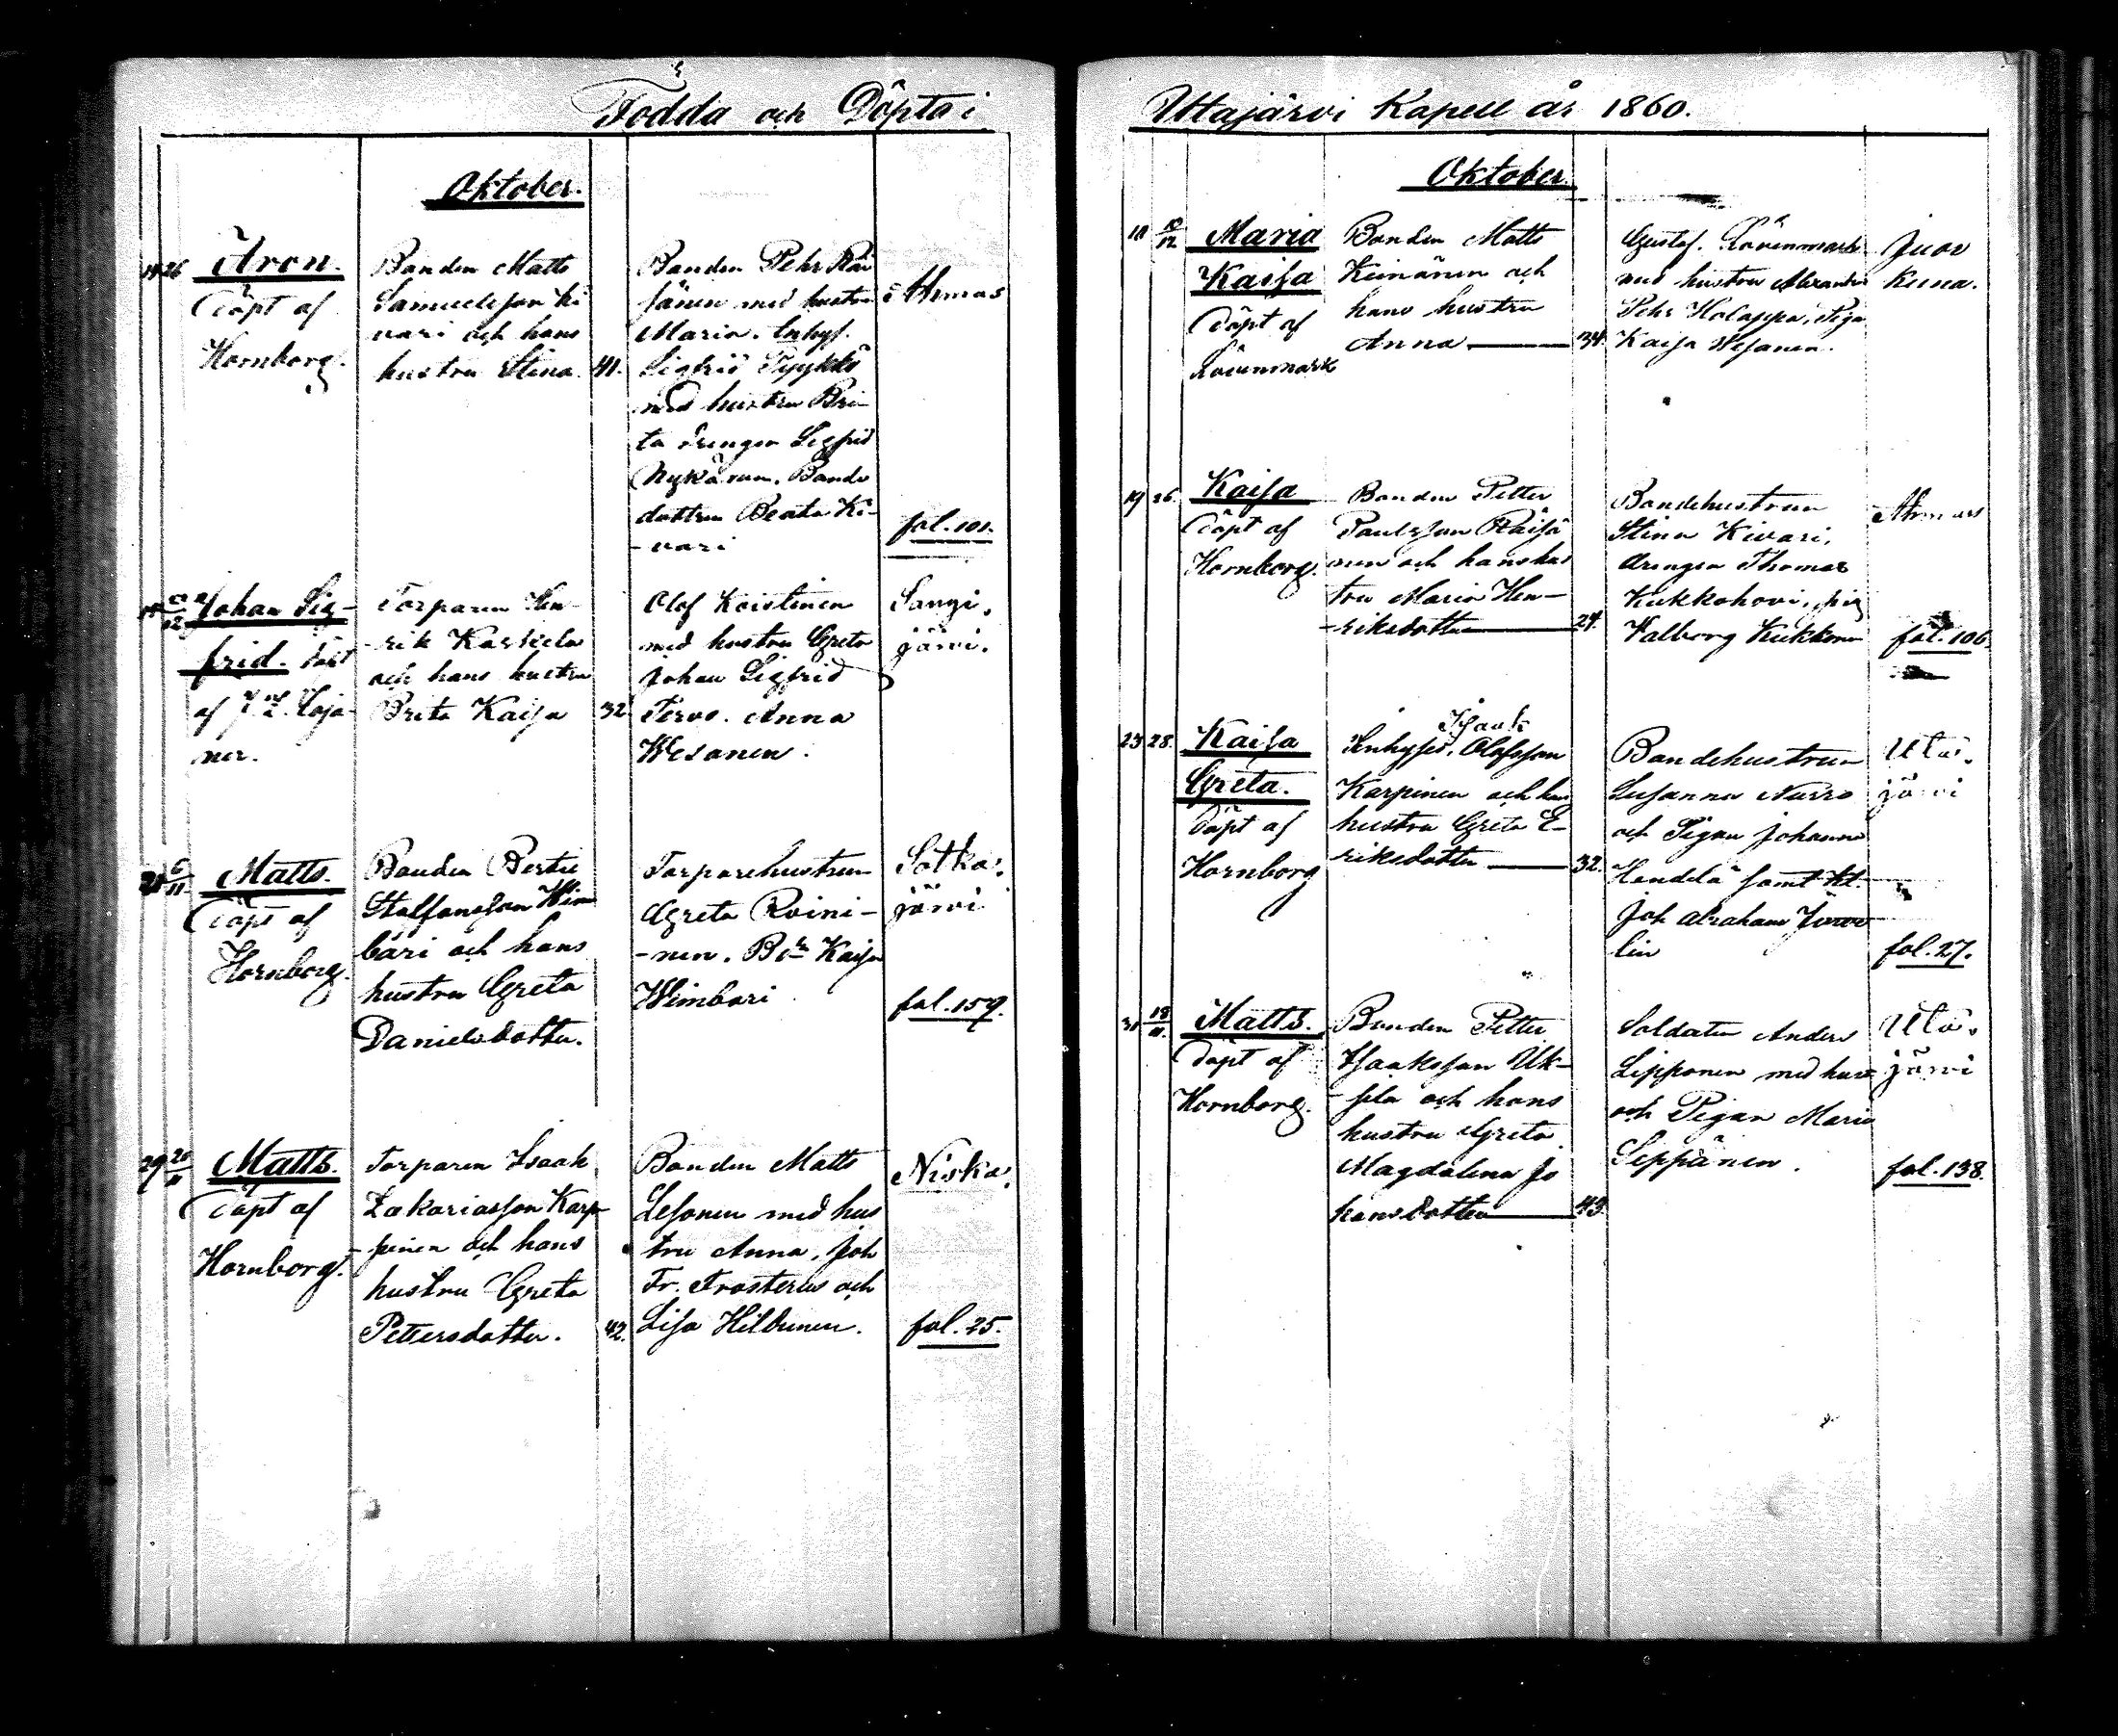 Födda och Döpta i
Oktober.
14 26 Aron.
Döpt af
Hornborg.
Bonden Matts
Samuelsson Ki
vari och hans
hustru Stina. 41.
Bonden Pehr Räi
sänen med hustru
Maria. Inhys.
Sigfrid Tyykkö
med hustru Bri-
ta drengen Sigfrid
Nykänen. Bonde
dottren Beata Ki-
-vari
Ahmas
fol. 101.
Johan Sig-
frid. döpt
af
ner.
Torparen Hen-
rik Karhela
och hans hustru
Brita Kaisa 32
Olof Koistinen
med hustru Greta
Johan Sigfrid
Tervo. Anna
Wesanen.
Sangi,
järvi.
6/11 Matts.
Döpt af
Hornborg.
Bonden Bertil
Staffansson Wim
bäri och hans
hustru Greta
Danielsdotter.
Torparehustrun
Greta Roini-
-nen. Kaisa
Wimbari
Sotka,
järvi
fol. 159.
29 Matts.
Döpt af
Hornborg.
Torparen Isaak
Zakariasson Karp-
-pinen och hans
hustru Greta
Pettersdotter. 42.
Bonden Matts
Lesonen med hus
tru Anna, Joh
Fr. Frosterus och
Lisa Hildunen.
Niska,
fol. 25.
Uttajärvi Kapell år 1860.
Oktober.
Maria
Kaisa
Döpt af
Lövenmark
Bonden Matts
Keinänen och
hans hustru
Anna 34.
Gustaf. Lövenmark
med hustru Alexandra
Pehr Holappa, Piga
Kaisa Wesanen.
Juor
kuna.
19 26. Kaisa
Döpt af
Hornborg.
Bonden Petter
Paulsson Räisä
nen och hans hus
tru Maria Hen-
-riksdotter 24.
Bondehustrun
Stina Kivari,
drengen Thomas
Kukkohovi, pig
Walborg Kukkonen
Ahmas
fol. 106.
23 28. Kaisa
Greta.
Döpt af
Hornborg
Isaak
Inhyses, Olofsson
Karpinen och hans
hustru Greta E-
riksdotter 32.
Bondehustrun
Susanna Nurro
och Pigan Johanna
Hendelä samt
Joh Abraham
lin
Uta,
järvi
fol. 27.
31 18/11. Matts.
Döpt af
Hornborg.
Bonden Petter
Isaksson Uk-
-sela och hans
hustru Greta
Magdalena Jo
hansdotter 43
Soldaten Anders
Lipponen med hus
och Pigan Maria
Seppänen.
Uta,
järvi
fol. 138.